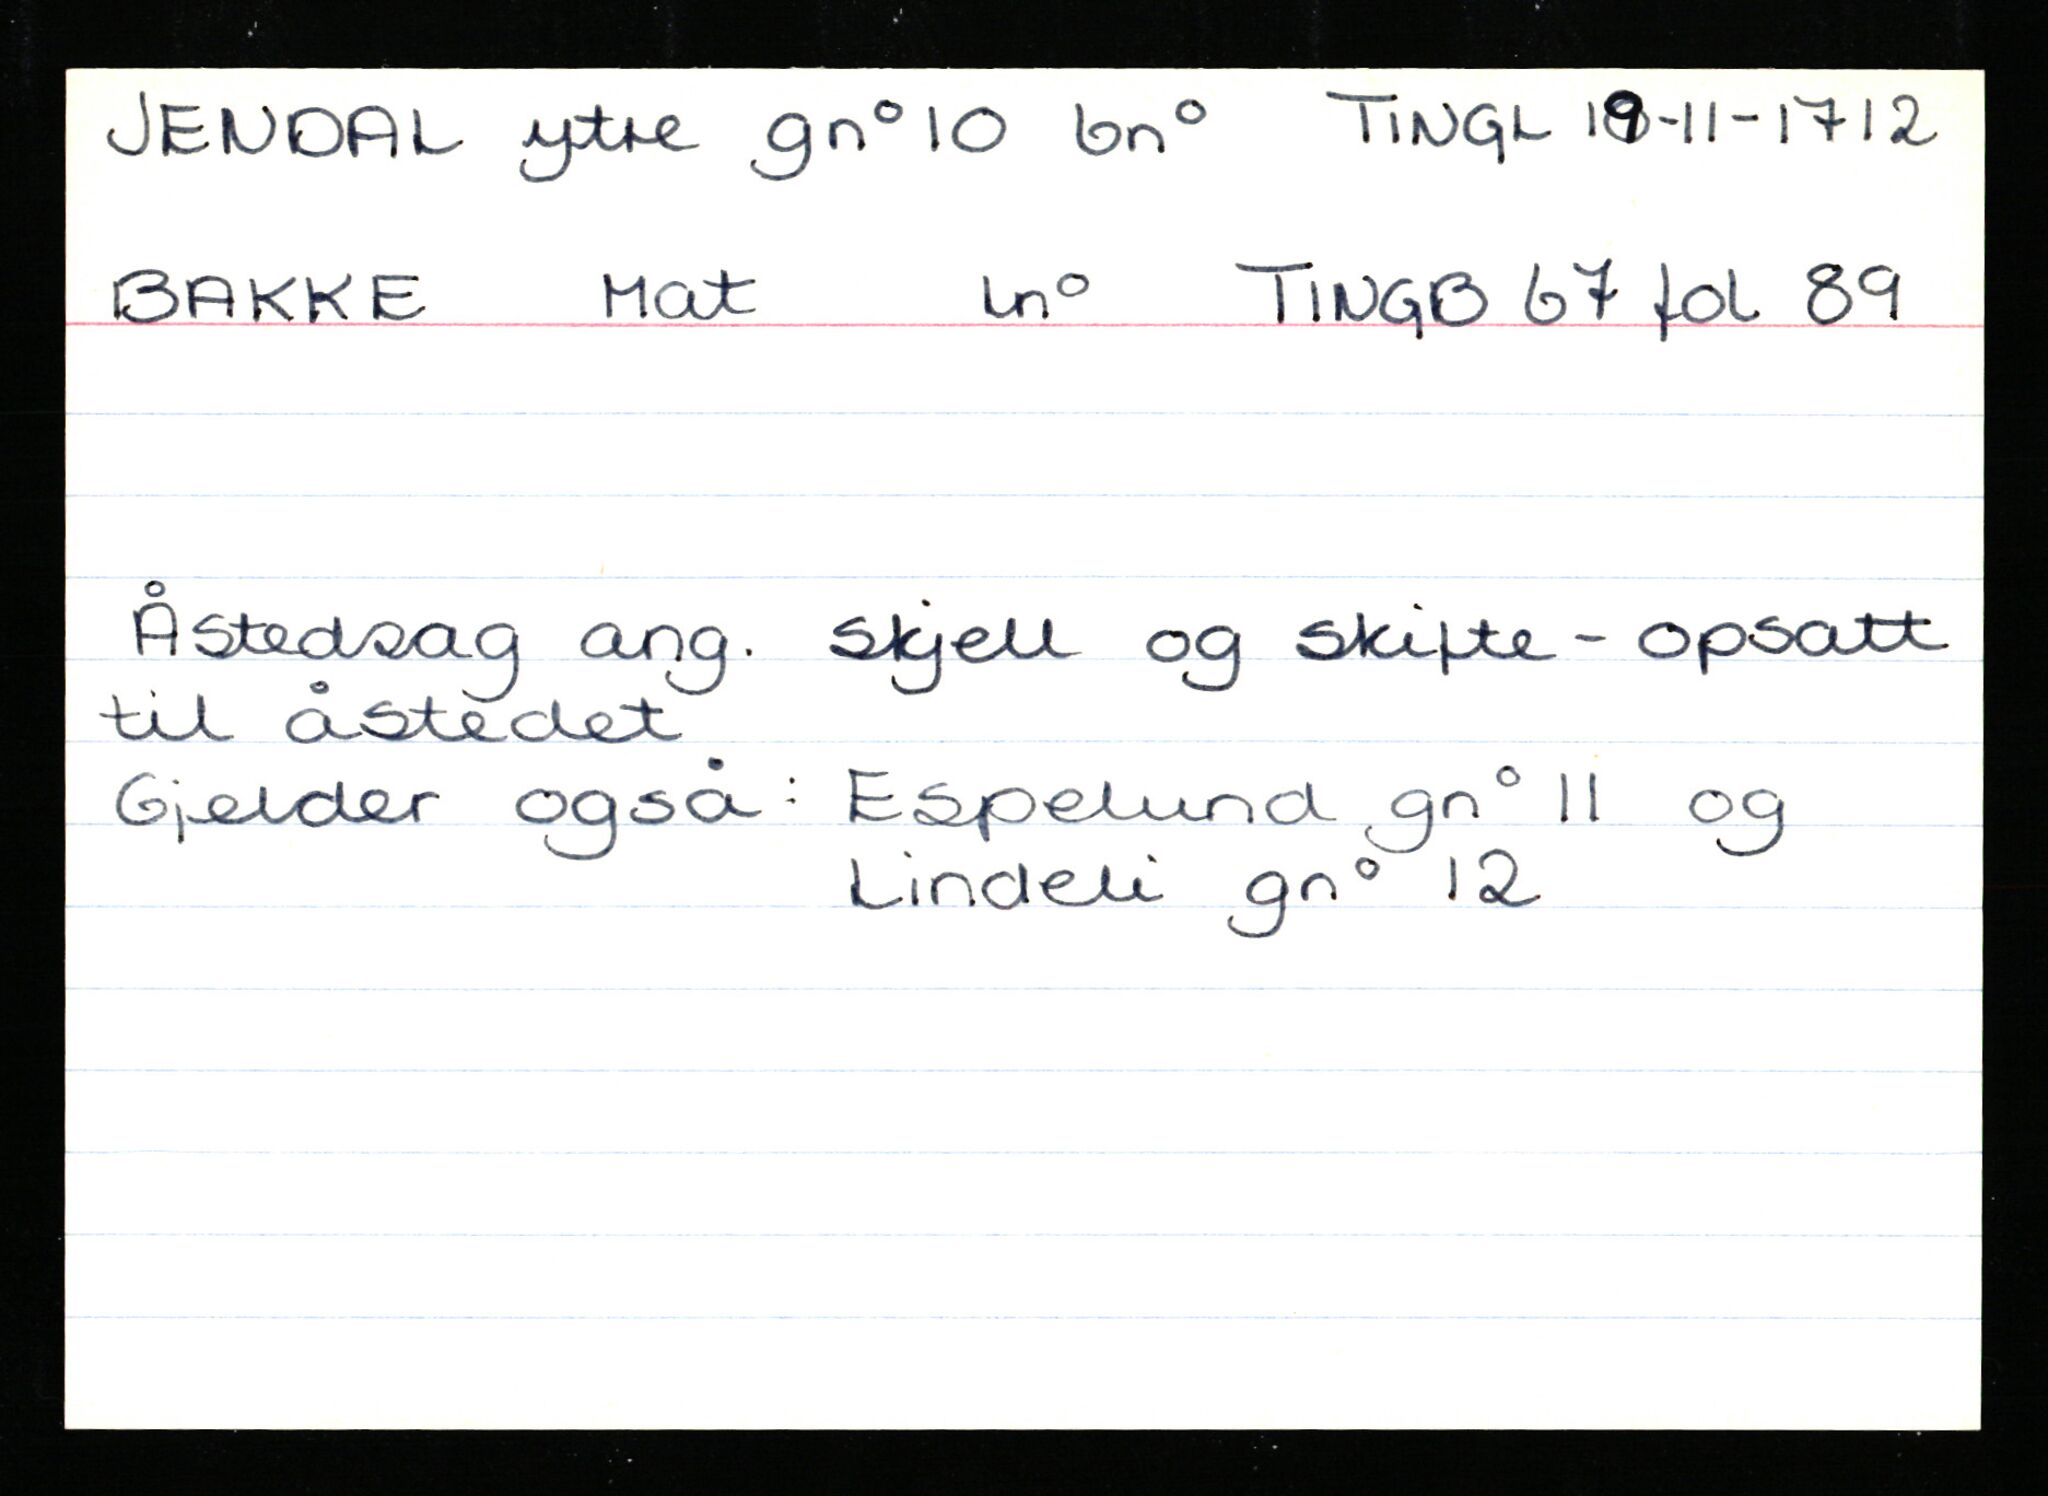 JENDAL ytre gn° 10 bn° TINGL 19-11-1712
BAKKE Mat Ln° TINGB 67 fol 89
Åstedsag ang. skjell og skifte - opsatt
til åstedet
Gjelder også: Espelund gn° 11 og
Lindeli gn° 12